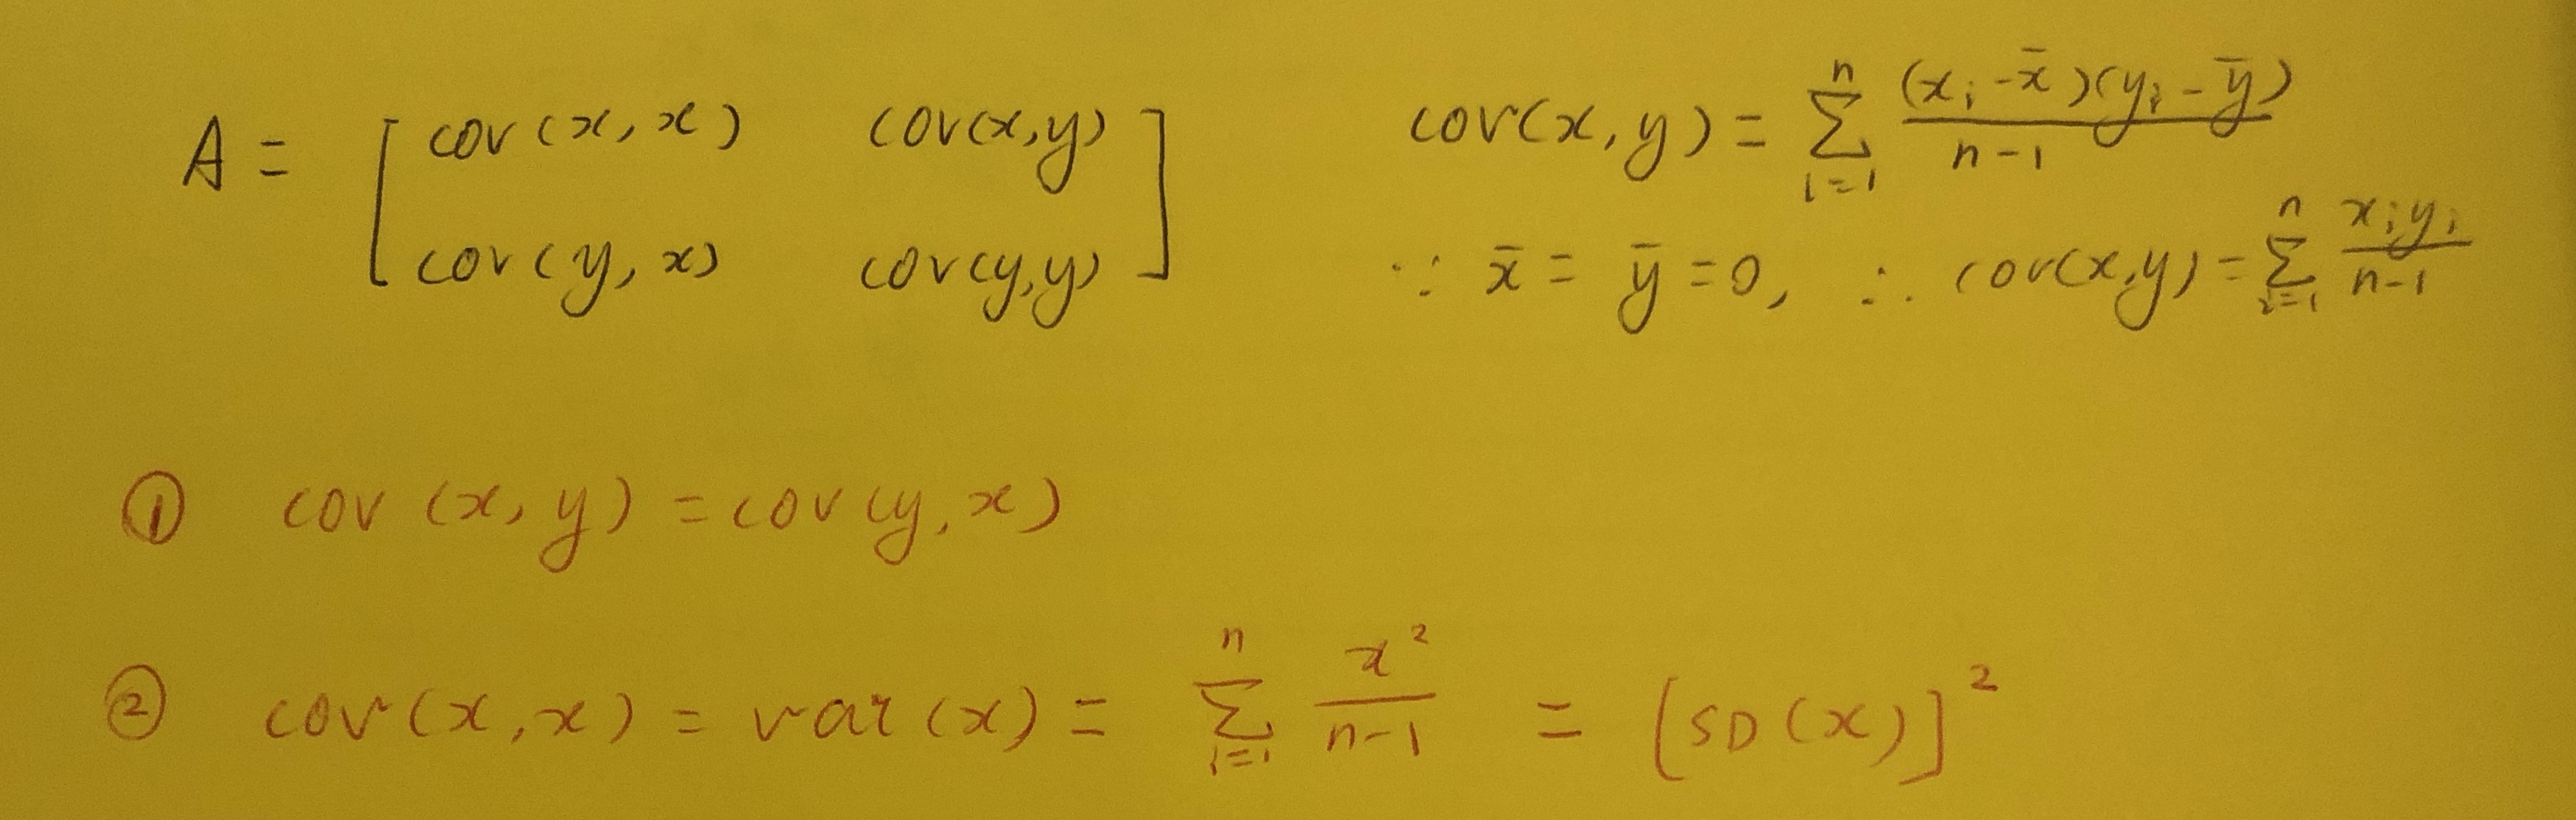 A = [ cov(x, x) cov(x,y)
cov(y, x) cov(y,y) ]
cov(x, y) = Σ_{i=1}^{n} (x_i - x̄)(y_i - ȳ) / n-1
∵ x̄ = ȳ = 0, ∴ cov(x,y) = Σ_{i=1}^{n} x_i y_i / n-1
① cov (x, y) = cov (y, x)
② cov (x, x) = var (x) = Σ_{i=1}^{n} x² / n-1 = [SD(x)]²